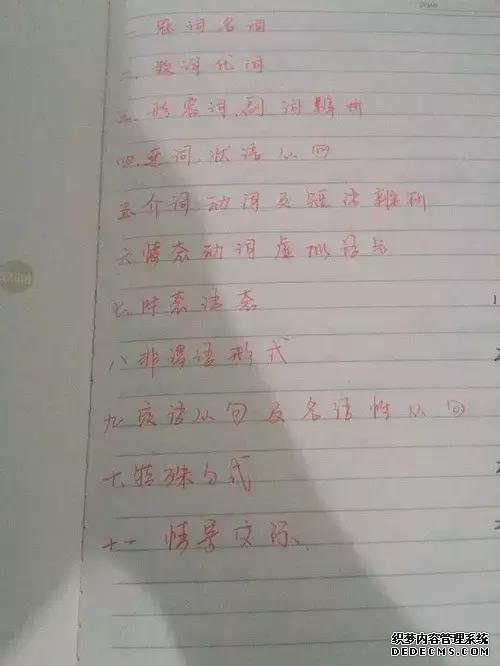 一 冠词名词
二、数词代词
三、形容词、副词辨析
四、连词、状语从句
五、介词动词及短语辨析
六、情态动词虚拟语气
七、时态语态
八、非谓语形式
九、定语从句及名词性从句
十、特殊句式
十一 情景交际.
织梦内容管理系统
DEDECMS.COM